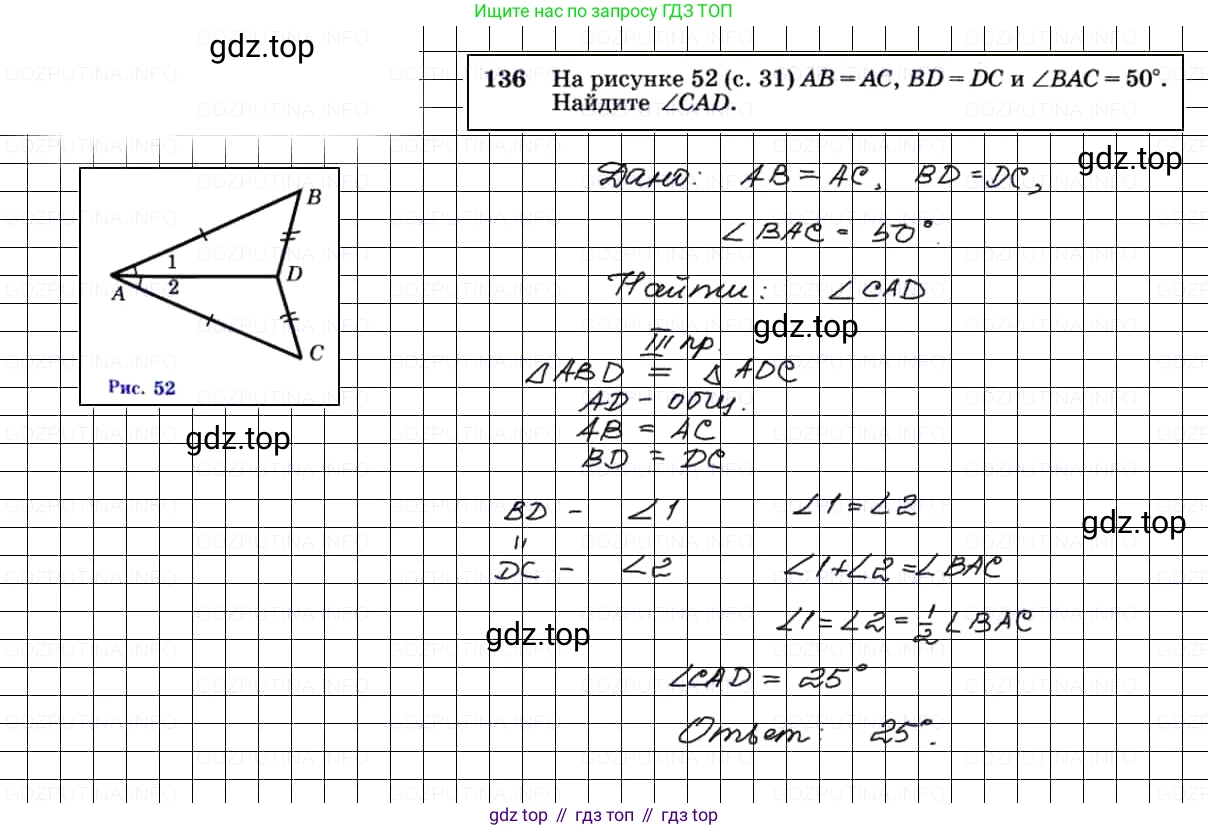 Ищите нас по запросу ГДЗ ТОП
gdz.top
136 На рисунке 52 (с. 31) AB = AC, BD = DC и ∠BAC = 50°.
Найдите ∠CAD.
gdz.top
Дано: AB = AC, BD = DC,
∠BAC = 50°.
Найти: ∠CAD
gdz.top
B
1
D
A
2
C
Рис. 52
gdz.top
III пр.
△ABD = △ADC
AD - общ.
AB = AC
BD = DC
BD - ∠1 ∠1 = ∠2
gdz.top
=
DC - ∠2 ∠1+∠2 = ∠BAC
∠1 = ∠2 = 1/2 ∠BAC
gdz.top
∠CAD = 25°
Ответ: 25°.
gdz top // гдз топ // гдз top